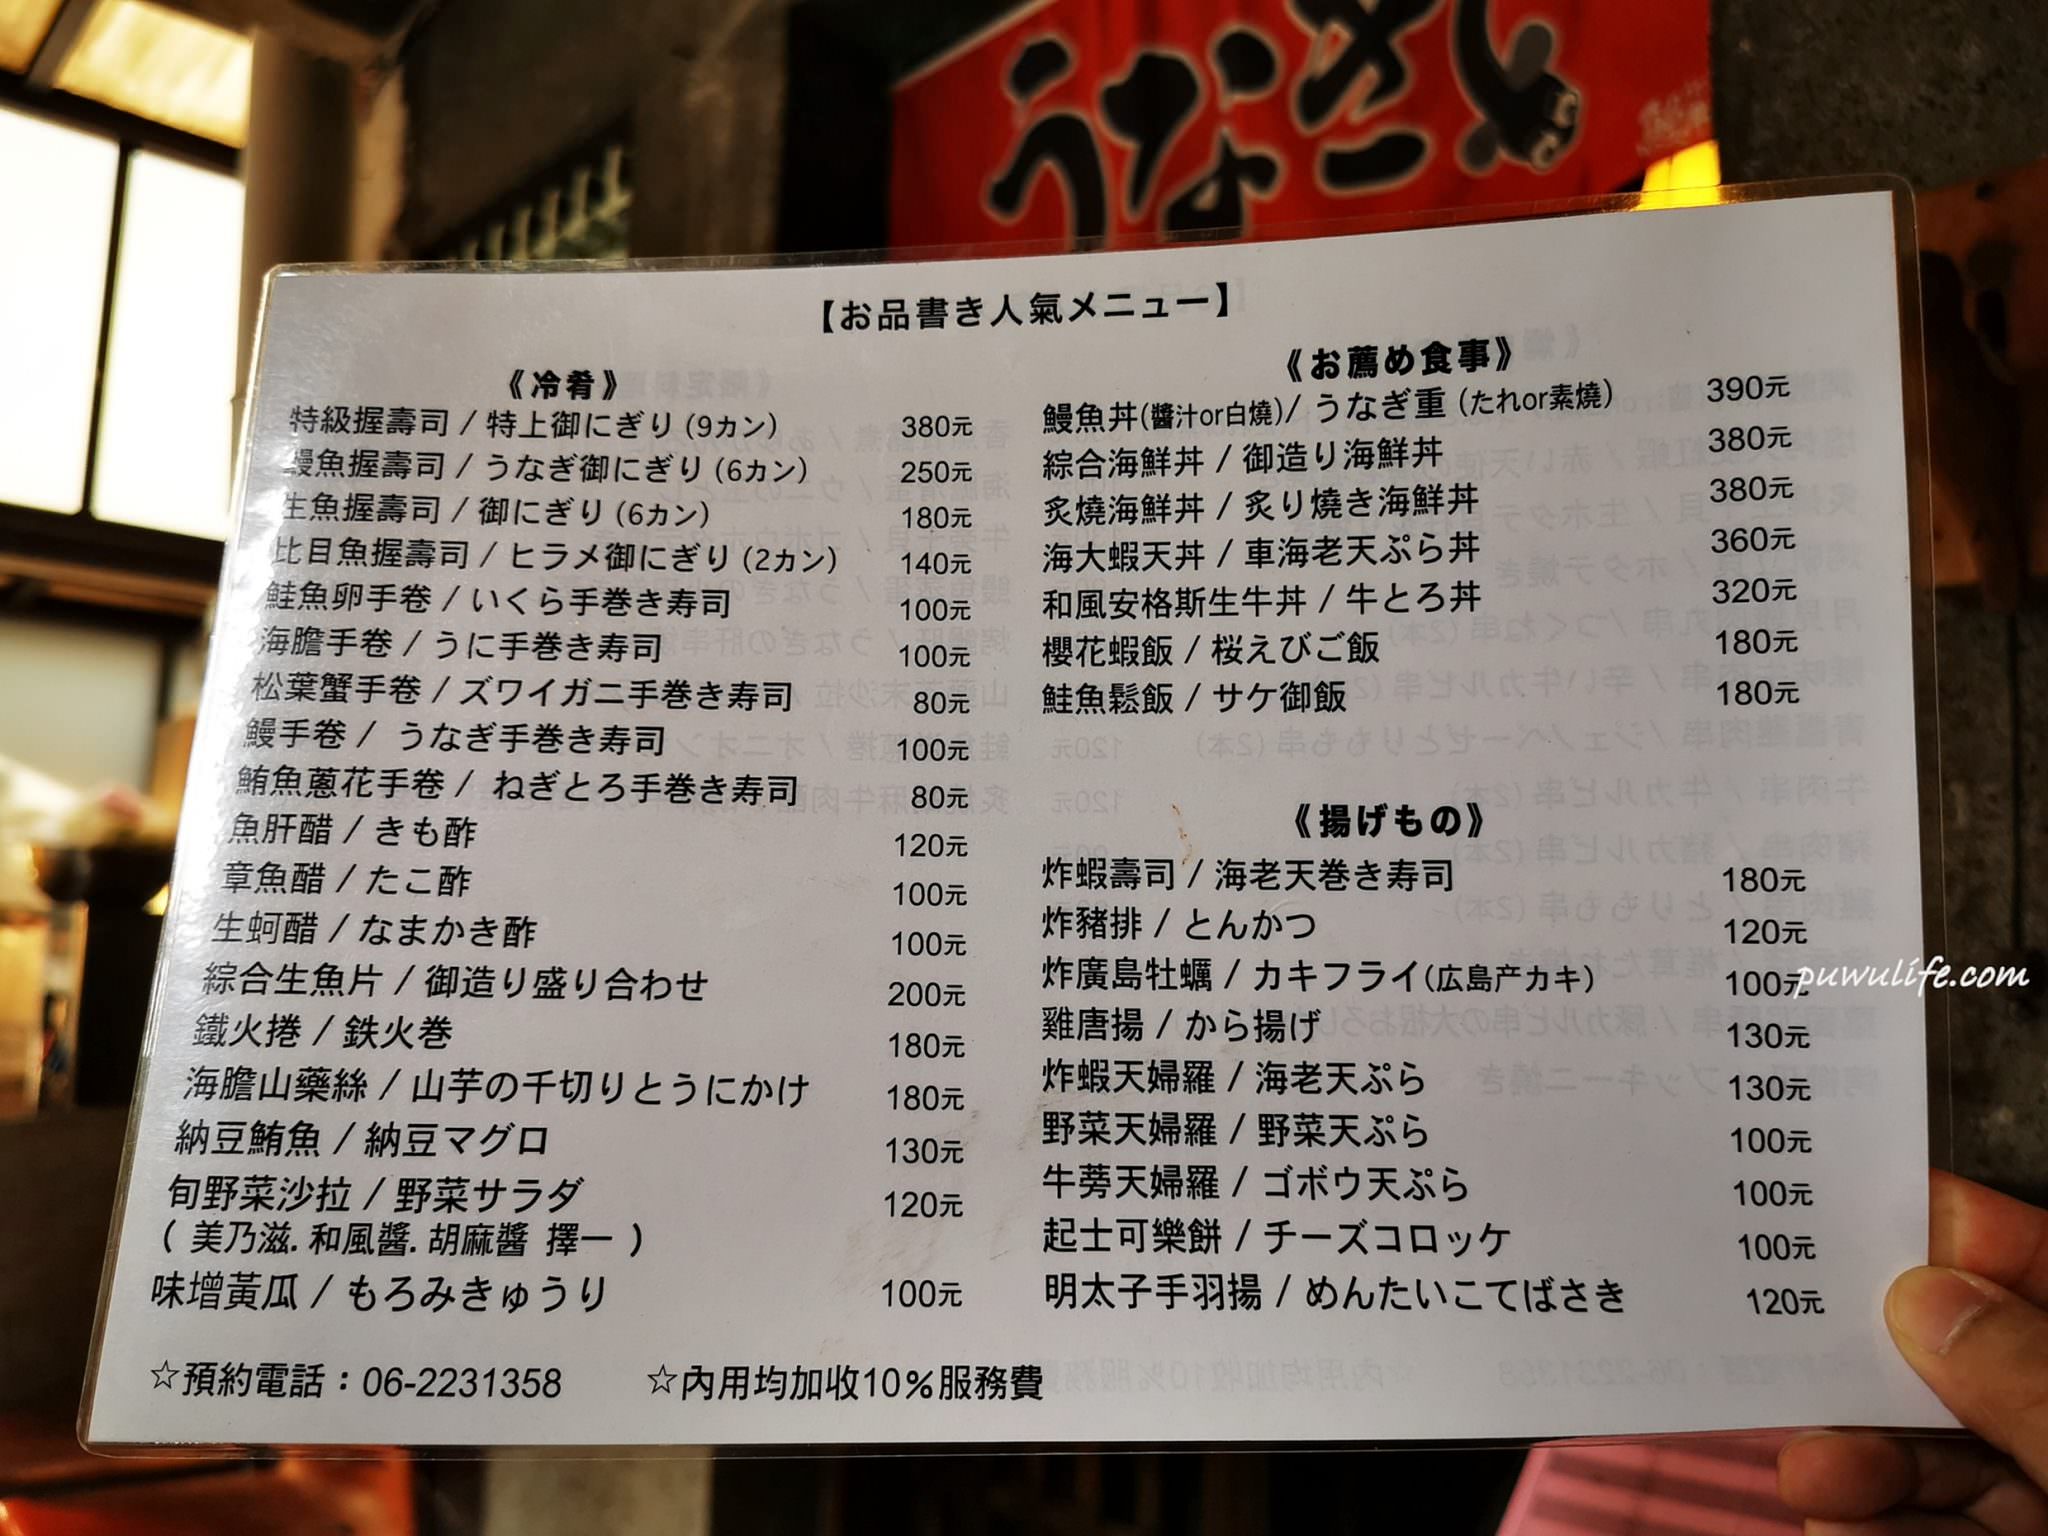 うなぎ
【お品書き人氣メニュー】
《冷肴》
特級握壽司 / 特上御にぎり (9カン) 380元
鰻魚握壽司 / うなぎ御にぎり (6カン) 250元
生魚握壽司 / 御にぎり (6カン) 180元
比目魚握壽司 / ヒラメ御にぎり (2カン) 140元
鮭魚卵手卷 / いくら手巻き寿司 100元
海膽手卷 / うに手巻き寿司 100元
松葉蟹手卷 / ズワイガニ手巻き寿司 80元
鰻手卷 / うなぎ手巻き寿司 100元
鮪魚蔥花手卷 / ねぎとろ手巻き寿司 80元
魚肝醋 / きも酢 120元
章魚醋 / たこ酢 100元
生蚵醋 / なまかき酢 100元
綜合生魚片 / 御造り盛り合わせ 200元
鐵火捲 / 鉄火巻 180元
海膽山藥絲 / 山芋の千切りとうにかけ 180元
納豆鮪魚 / 納豆マグロ 130元
旬野菜沙拉 / 野菜サラダ 120元
( 美乃滋.和風醬.胡麻醬 擇一 )
味增黃瓜 / もろみきゅうり 100元
《お薦め食事》
鰻魚丼(醬汁or白燒)/ うなぎ重 (たれor素燒) 390元
綜合海鮮丼 / 御造り海鮮丼 380元
炙燒海鮮丼 / 炙り燒き海鮮丼 380元
海大蝦天丼 / 車海老天ぷら丼 360元
和風安格斯生牛丼 / 牛とろ丼 320元
櫻花蝦飯 / 桜えびご飯 180元
鮭魚鬆飯 / サケ御飯 180元
《揚げもの》
炸蝦壽司 / 海老天巻き寿司 180元
炸豬排 / とんかつ 120元
炸廣島牡蠣 / カキフライ(広島产カキ) 100元
雞唐揚 / から揚げ 130元
炸蝦天婦羅 / 海老天ぷら 130元
野菜天婦羅 / 野菜天ぷら 100元
牛蒡天婦羅 / ゴボウ天ぷら 100元
起士可樂餅 / チーズコロッケ 100元
明太子手羽揚 / めんたいこてばさき 120元
☆預約電話：06-2231358 ☆內用均加收10%服務費
puwulife.com